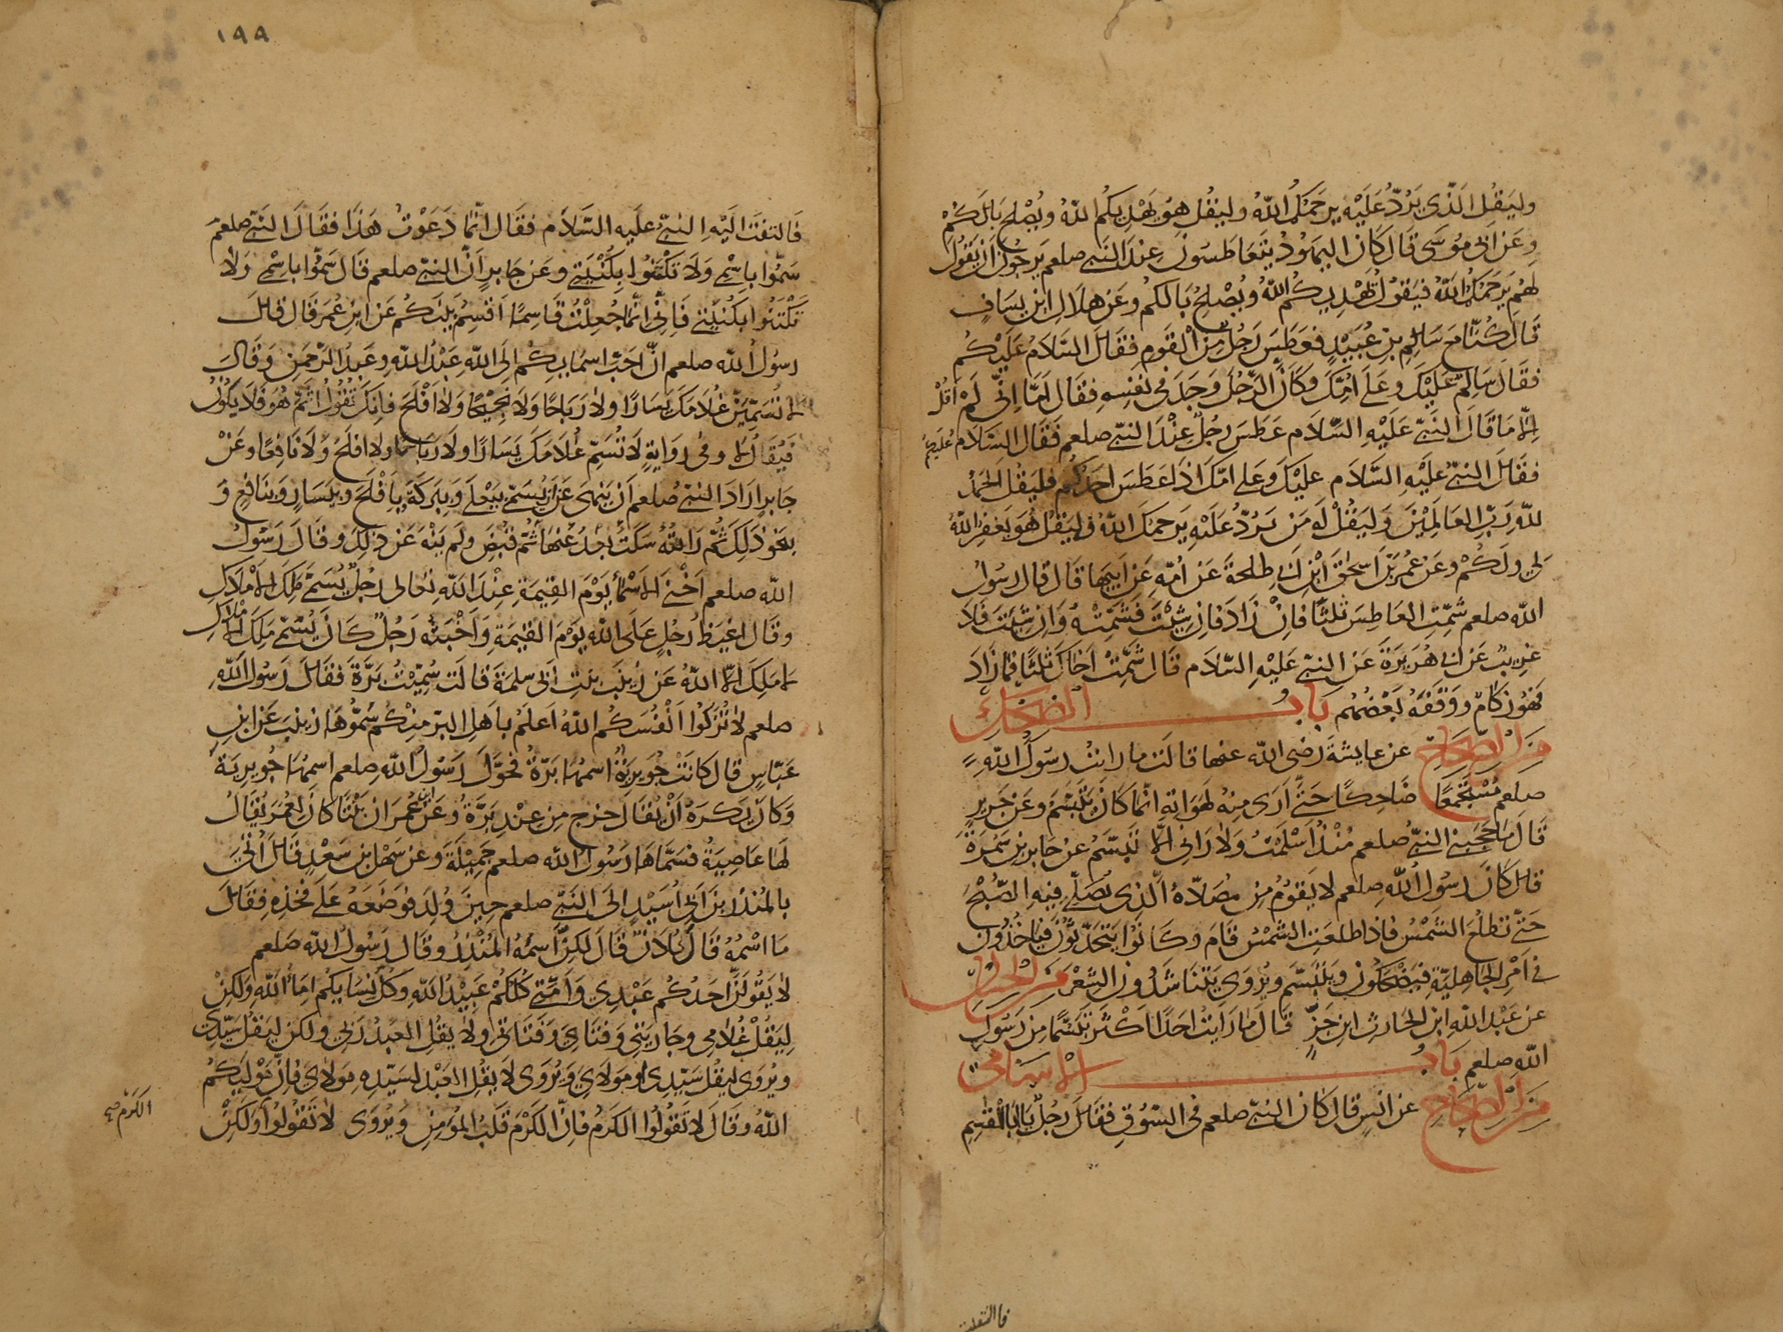 وليقل الذي يرد عليه يرحمكم الله وليقل هو يهديكم الله ويصلح بالكم
وعن ابى موسى قال كان اليهود يتعاطسون عند النبي صلعم يرجون ان يقول
لهم يرحمكم الله فيقول يهديكم الله ويصلح بالكم وعن هلال ابن يساف
قال كنا مع سالم بن عبيد فعطس رجل من القوم فقال السلام عليكم
فقال سالم عليك وعلى امك وكان الرجل وجد فى نفسه فقال اما انى لم اقل
الا ما قال النبي عليه السلام عطس رجل عند النبي صلعم فقال السلام عليكم
فقال النبي عليه السلام عليك وعلى امك اذا عطس احدكم فليقل الحمد
لله رب العالمين وليقل له من يرد عليه يرحمك الله وليقل هو يغفر الله
لى ولكم وعن عمر بن اسحق ابن ابى طلحة عن امه عن ابيها قال قال رسول
الله صلعم شمت العاطس ثلثا فان زاد فان شئت فشمته وان شئت فلا
غريب عن ابى هريرة عن النبي عليه السلام قال شمت اخاك ثلثا فما زاد
فهو زكام ووقفه بعضهم باب الضحك
من الصحاح عن عايشة رضى الله عنها قالت ما رايت رسول الله
صلعم مستجمعا ضاحكا حتى ارى منه لهواته انما كان يتبسم وعن جرير
قال ما حجبني النبي صلعم منذ اسلمت ولا رانى الا تبسم عن جابر بن سمرة
قال كان رسول الله صلعم لا يقوم من مصلاه الذى يصلى فيه الصبح
حتى تطلع الشمس فاذا طلعت الشمس قام وكانوا يتحدثون فياخذون
فى امر الجاهلية فيضحكون ويتبسم ويروى يتناشدون الشعر من الحسان
عن عبد الله ابن الحارث ابن جزء قال ما رايت احدا اكثر تبسما من رسول
الله صلعم باب الاسامى
من الصحاح عن انس قال كان النبي صلعم فى السوق فقال رجل يا ابا القسم
فالتفت
١٩٩
فالتفت اليه النبي عليه السلام فقال انما دعوت هذا فقال النبي صلعم
سموا باسمى ولا تكتنوا بكنيتى وعن جابر ان النبي صلعم قال سموا باسمى ولا
تكتنوا بكنيتى فانى انما جعلت قاسما اقسم بينكم عن ابن عمر قال قال
رسول الله صلعم ان احب اسمايكم الى الله عبد الله وعبد الرحمن وقال
لا تسمين غلامك يسارا ولا رباحا ولا نجيحا ولا افلح فانك تقول اثم هو فلا يكون
فيقال لا وفى رواية لا تسم غلامك يسارا ولا رباحا ولا افلح ولا نافعا وعن
جابر اراد النبي صلعم ان ينهى عن ان يسمى بيعلى وببركة وبافلح وبيسار وبنافع و
بنحو ذلك ثم رايته سكت بعد عنها ثم قبض ولم ينه عن ذلك وقال رسول
الله صلعم اخنى الاسماء يوم القيمة عند الله تعالى رجل يسمى ملك الاملاك
وقال اغيظ رجل على الله يوم القيمة واخبثه رجل كان يسمى ملك الاملاك
لا ملك الا الله عن زينب بنت ابى سلمة قالت سميت برة فقال رسول الله
صلعم لا تزكوا انفسكم الله اعلم باهل البر منكم سموها زينب عن ابن
عباس قال كانت جويرية اسمها برة فحول رسول الله صلعم اسمها جويرية
وكان يكره ان يقال خرج من عند برة وعن ابن عمر ان بنتا كان لعمر يقال
لها عاصية فسماها رسول الله صلعم جميلة وعن سهل بن سعد قال اتى
بالمنذر بن ابى اسيد الى النبي صلعم حين ولد فوضعه على فخذه فقال
ما اسمه قال فلان قال لكن اسمه المنذر وقال رسول الله صلعم
لا يقولن احدكم عبدى وامتى كلكم عبيد الله وكل نسايكم اماء الله ولكن
ليقل غلامى وجاريتى وفتاى وفتاتى ولا يقل العبد ربى ولكن ليقل سيدى
ويروى ليقل سيدى او مولاى ويروى لا يقل العبد لسيده مولاى فان موليكم
الله وقال لا تقولوا الكرم فان الكرم قلب المؤمن ويروى لا تقولوا ولكن
الكرم صح